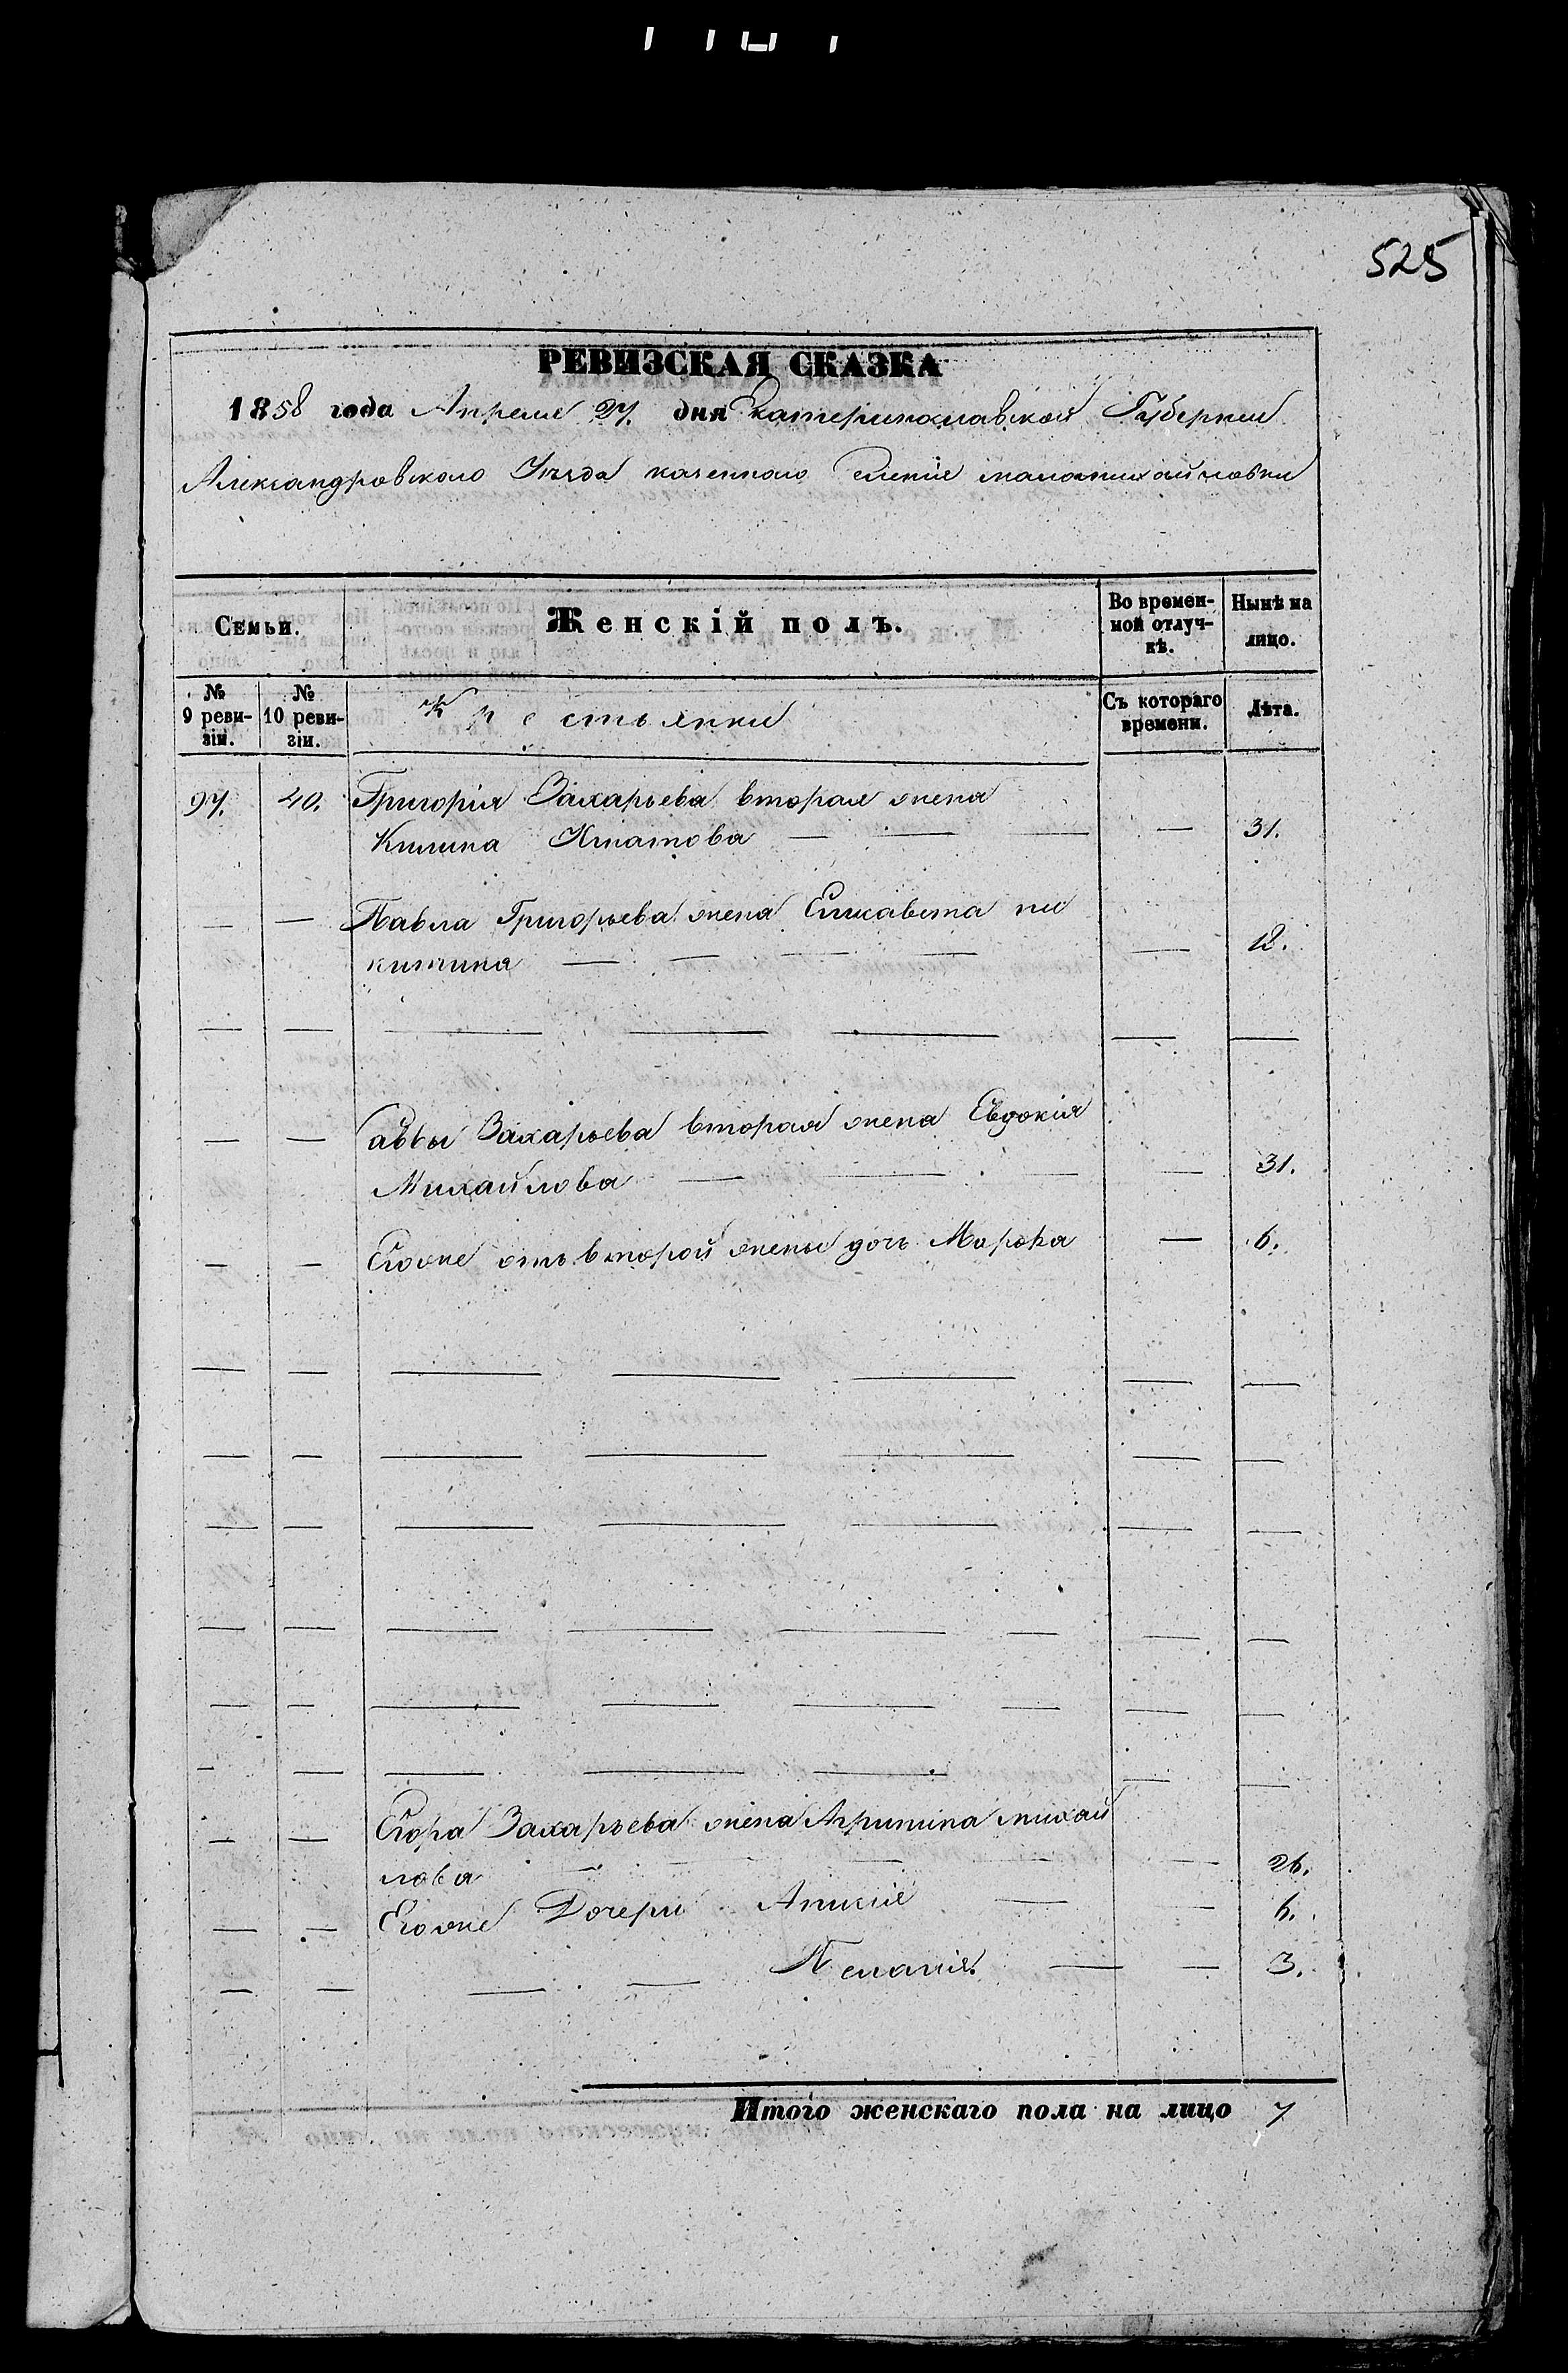 525
РЕВИЗСКАЯ СКАЗКА
1858 года Апреля 27. дня Екатеринославской Губернии
Александровского Уезда казенного селения маломихайловки
Семьи. Женскій полъ. Во времен-ной отлуч-кѣ. Нынѣ на лицо.
№ 9 реви-зіи. № 10 реви-зіи. Крестьянки Съ котораго времени. Лѣта.
97. 40. Григорія Захарьева вторая жена
Килина Игнатова — — — — 31.
— — Павла Григорьева жена Елисавета ни
китина — — — — — 18.
— — — — — — —
— — Саввы Захарьева вторая жена Евдокія
Михайлова — — — — 31.
— — Егоже отъ второй жены дочь Марѳа — 6.
— — — — — — —
— — — — — — —
— — — — — — —
— — — — — — — —
— — — — — — — —
— — — — — — —
— — Егора Захарьева жена Агрипина михай
лова — — — — — 26.
— — Егоже Дочери Аникія — — 6.
— — — — Пелагія — — 3.
Итого женскаго пола на лицо 7